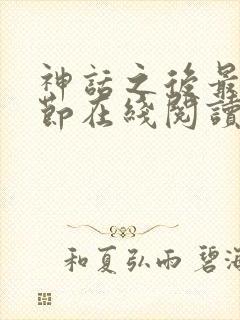 神話之後最
節在綫閱讀
和夏弘雨 碧海